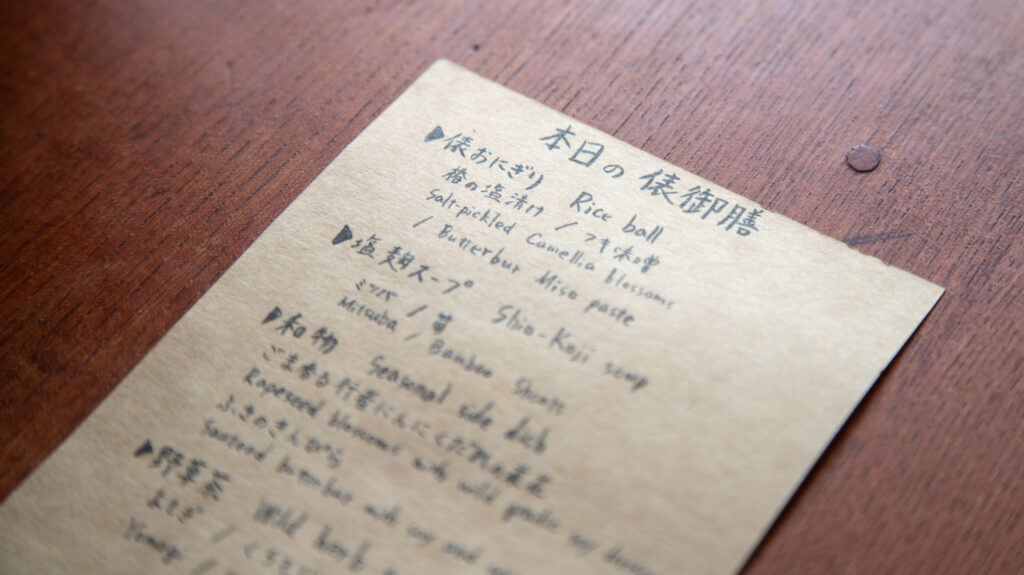 本日の 俵御膳
▶俵おにぎり Rice ball
椿の塩漬け / フキ味噌
Salt-pickled Camellia blossoms
/ Butterbur Miso paste
▶塩麹スープ Shio-Koji soup
ミツバ / 筍
Mitsuba / Bamboo Shoots
▶和物 Seasonal side dish
ごま香る行者にんにくだれの菜花
Rapeseed blossoms with wild garlic soy
ふきのきんぴら
Sauteed butterbur with soy and
▶野草茶 Wild herb
よもぎ /
Yomogi /